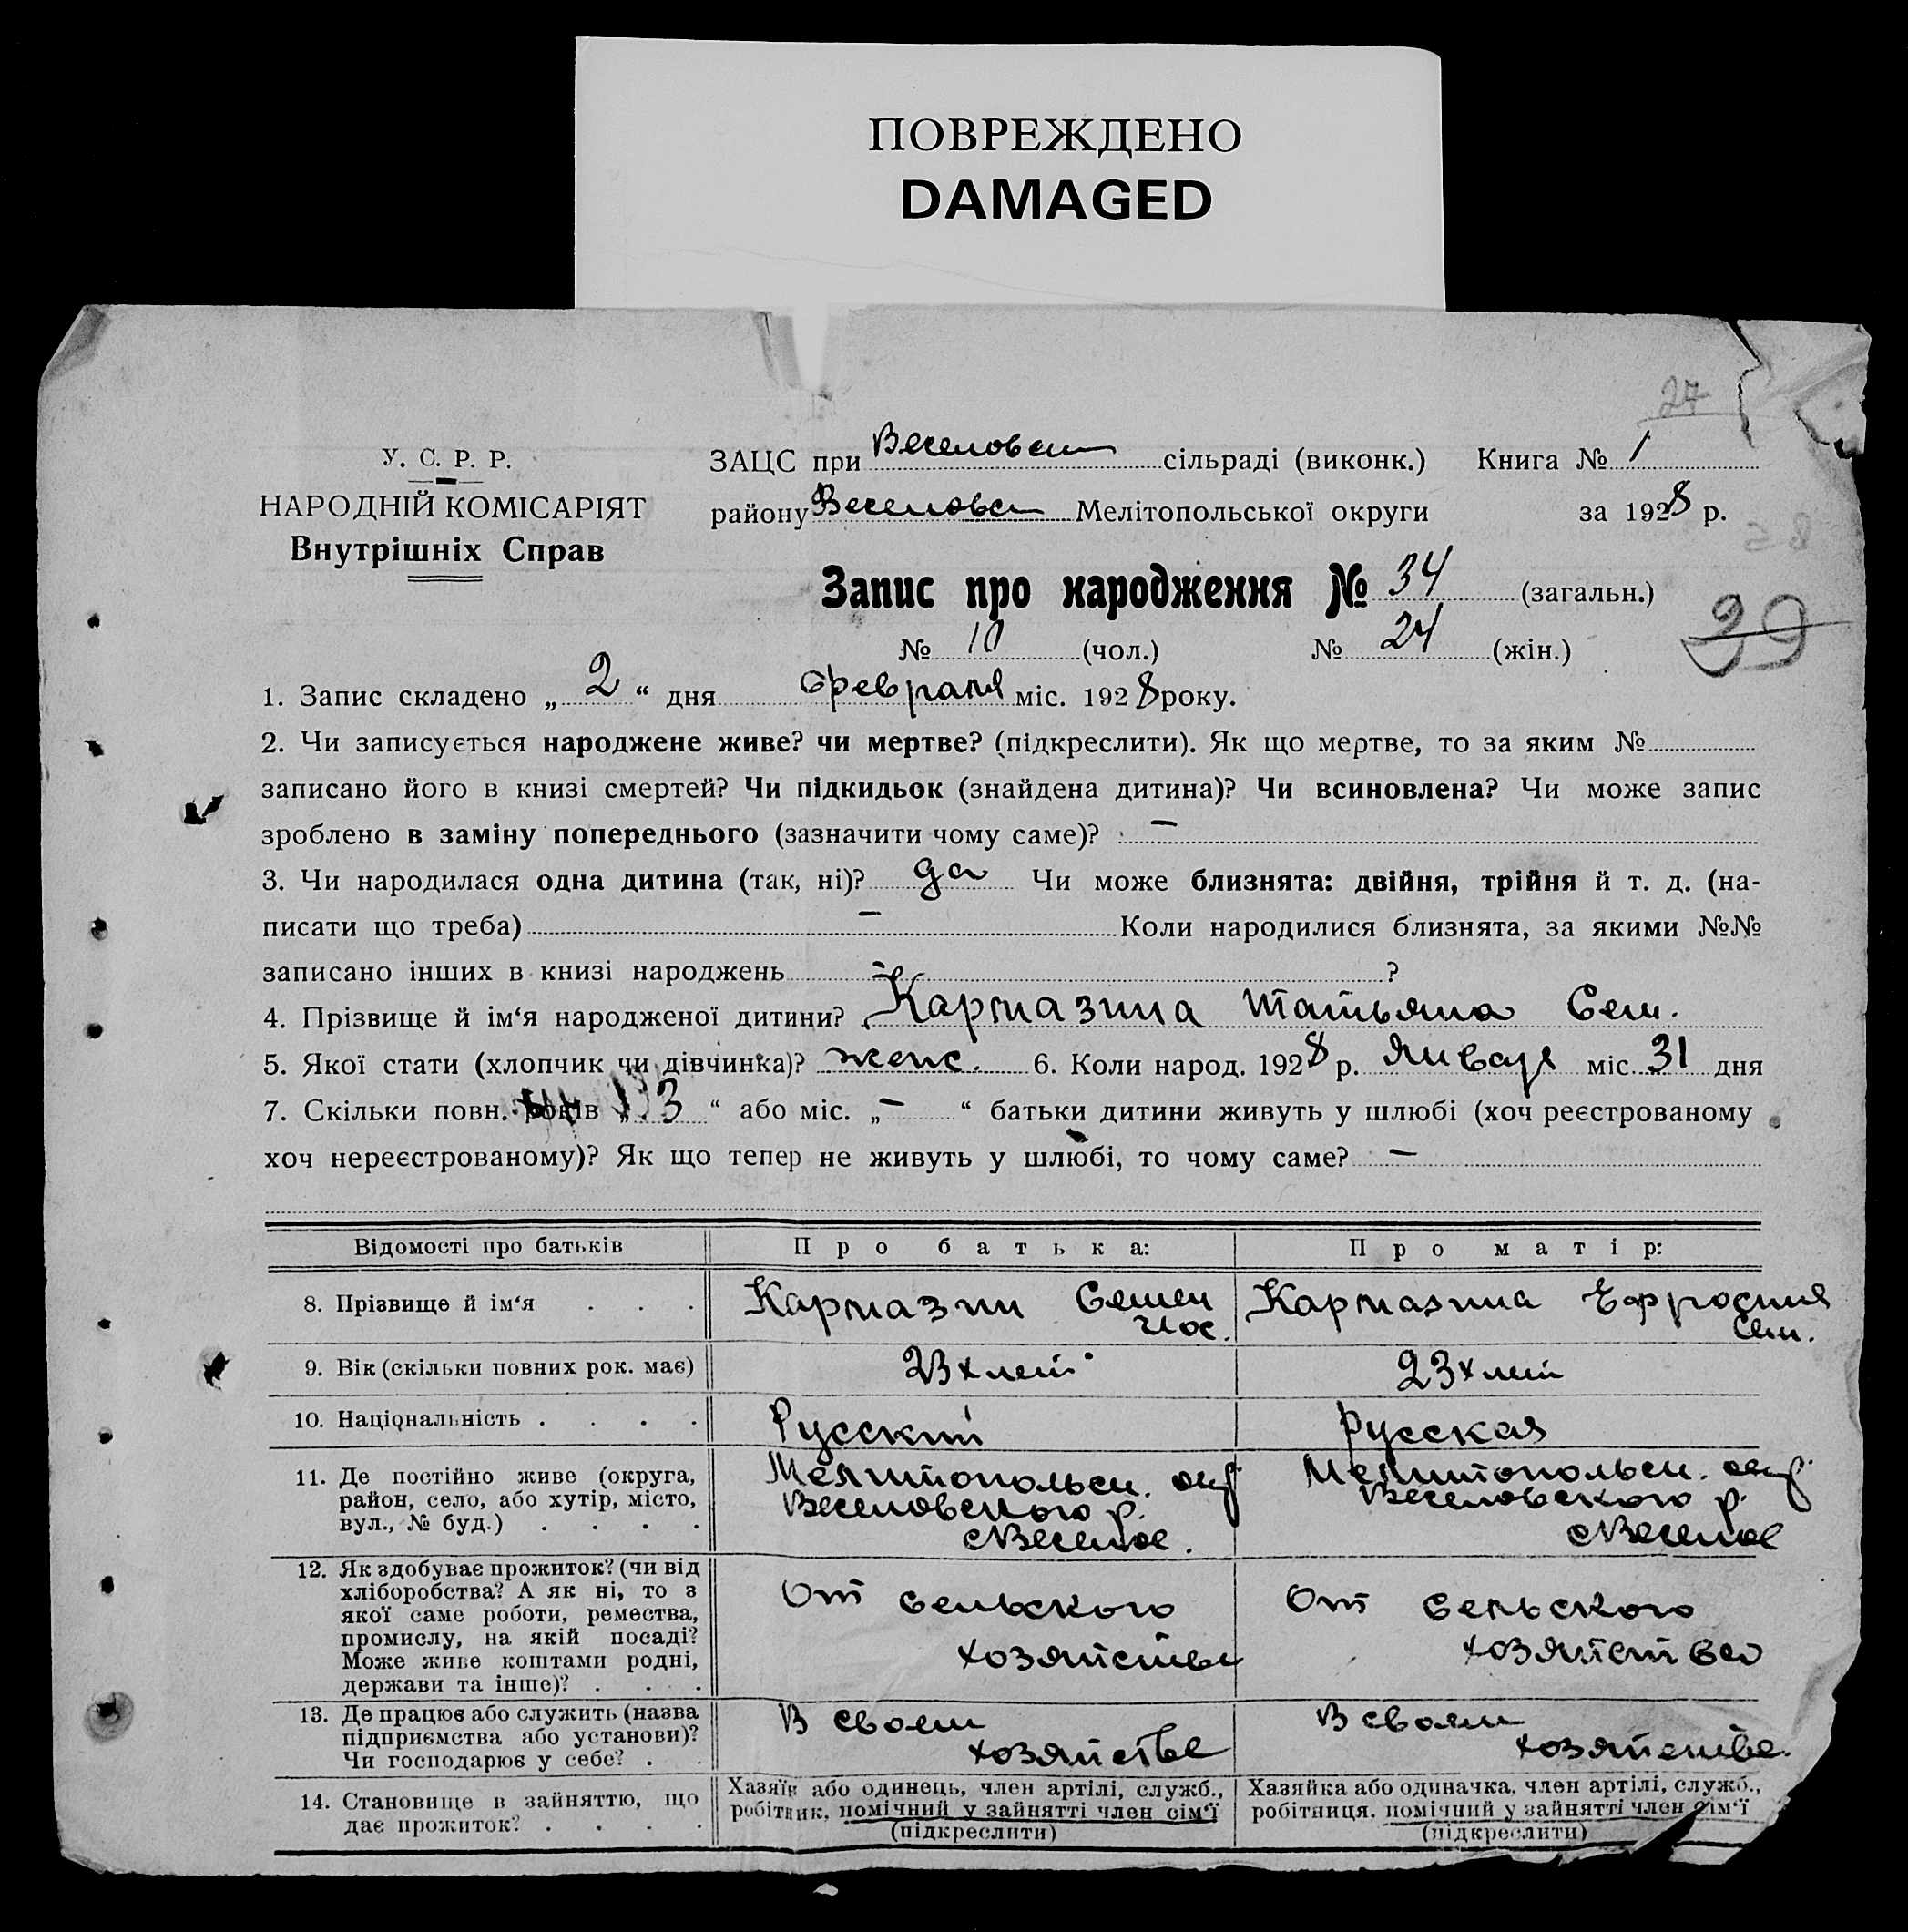 ПОВРЕЖДЕНО
DAMAGED
27
У. С. Р. Р.
НАРОДНІЙ КОМІСАРІЯТ
Внутрішніх Справ
ЗАЦС при Веселовск сільраді (виконк.) Книга № 1
району Веселовск Мелітопольської округи за 1928 р.
Запис про народження № 34 (загальн.)
№ 10 (чол.) № 24 (жін.)
39
1. Запис складено „ 2 “ дня Февраля міс. 1928 року.
2. Чи записується народжене живе? чи мертве? (підкреслити). Як що мертве, то за яким №
записано його в книзі смертей? Чи підкидьок (знайдена дитина)? Чи всиновлена? Чи може запис
зроблено в заміну попереднього (зазначити чому саме)? —
3. Чи народилася одна дитина (так, ні)? да Чи може близнята: двійня, трійня й т. д. (на-
писати що треба) — Коли народилися близнята, за якими №№
записано інших в книзі народжень — ?
4. Прізвище й ім‘я народженої дитини? Кармазина Татьяна Сем.
5. Якої стати (хлопчик чи дівчинка)? женс. 6. Коли народ. 1928 р. Января міс. 31 дня
7. Скільки повн. років „ 3 “ або міс. „ — “ батьки дитини живуть у шлюбі (хоч реєстрованому
хоч нереєстрованому)? Як що тепер не живуть у шлюбі, то чому саме? —
Відомості про батьків Про батька: Про матір:
8. Прізвище й ім‘я . . . Кармазин Семен Иос. Кармазина Ефросиния Сем.
9. Вік (скільки повних рок. має) 23х лет 23х лет
10. Національність . . . . Русский Русская
11. Де постійно живе (округа,
район, село, або хутір, місто,
вул., № буд.) . . . .
Мелитопольск. окр.
Веселовского р.
с Веселое.
Мелитопольск. окр.
Веселовского р.
с Веселое
12. Як здобуває прожиток? (чи від
хліборобства? А як ні, то з
якої саме роботи, ремества,
промислу, на якій посаді?
Може живе коштами родні,
держави та інше)? . . .
От сельского
хозяйства
От сельского
хозяйства
13. Де працює або служить (назва
підприємства або установи)?
Чи господарює у себе? . .
В своем
хозяйстве
В своем
хозяйстве.
14. Становище в зайняттю, що
дає прожиток? . . . .
Хазяїн або одинець, член артілі, служб.,
робітник, помічний у зайнятті член сім‘ї
(підкреслити)
Хазяйка або одиначка, член артілі, служб.,
робітниця, помічний у зайнятті член сім‘ї
(підкреслити)